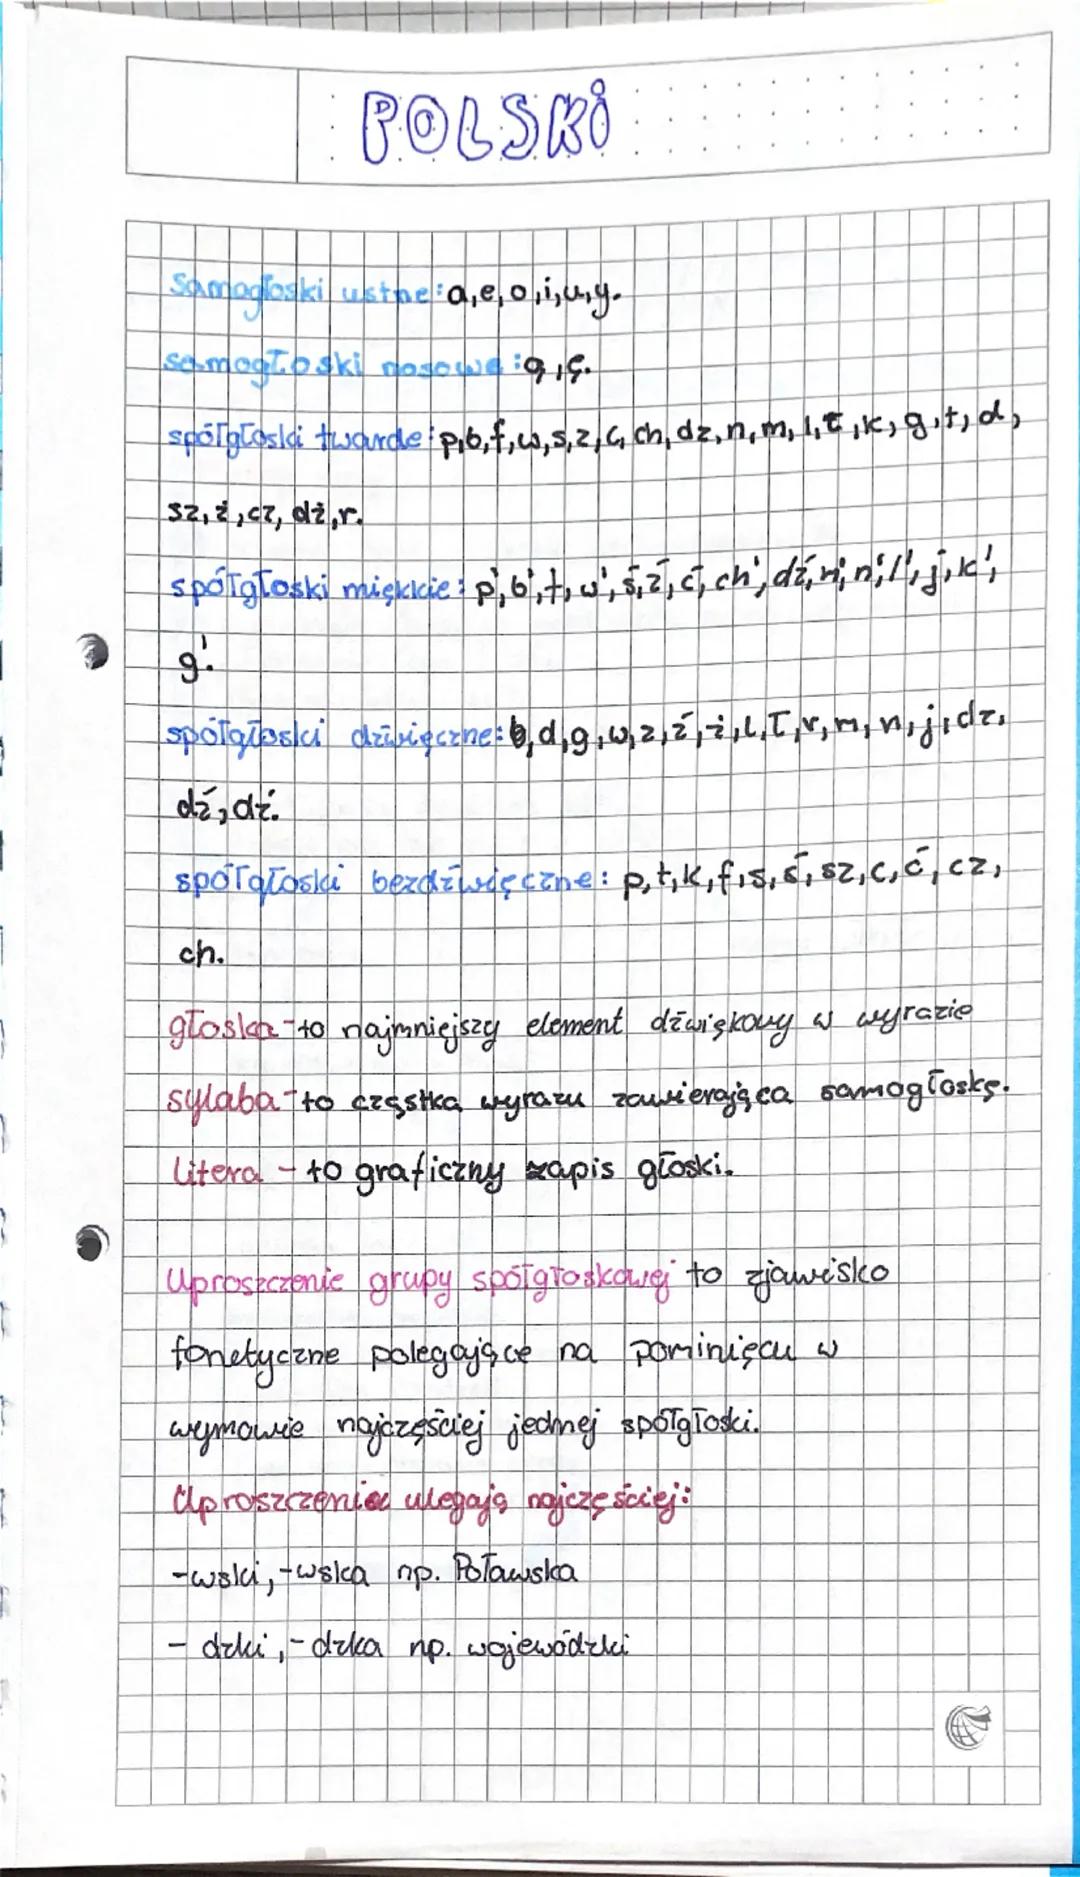 POLSKI
Samogłoski ustne: a, e, o, i, u, y.
samogłoski nosowe: ą, ę.
spółgłoski twarde: p, b, f, w, s, z, c, ch, dz, n, m, l, ł, k, g, t, d,
sz, ż, cz, dż, r.
spółgłoski miękkie: p', b', f, w', ś, ź, ć, ch', dź, ń, n', l', j, k',
g'.
spółgłoski dźwięczne: b, d, g, w, z, ź, ż, l, ł, r, m, n, j, dz,
dź, dż.
spółgłoski bezdźwięczne: p, t, k, f, s, ś, sz, c, ć, cz,
ch.
głoska - to najmniejszy element dźwiękowy w wyrazie
sylaba - to cząstka wyrazu zawierająca samogłoskę.
litera - to graficzny zapis głoski.
Uproszczenie grupy spółgłoskowej to zjawisko
fonetyczne polegające na pominięcu w
wymowie najczęściej jednej spółgłoski.
Uproszczenia ulegają najczęściej:
-wski, -wska np. Poławska
- dzki, - dzka np. wojewódzki